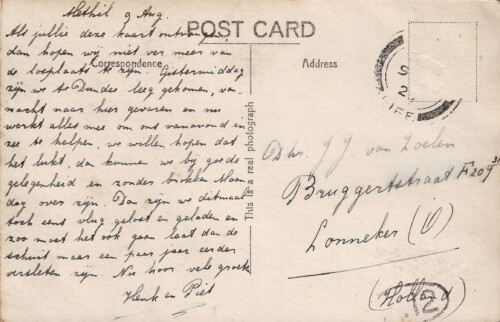 Methil 9 Aug.
POST CARD
Als jullie deze kaart ontvangen,
dan hopen wij niet ver meer van
de losplaats te zijn. Gistermiddag
zijn we te Dundee leeg gekomen, van-
nacht naar hier gevaren en nu
werkt alles mee om ons vanavond in
zee te helpen, we willen hopen dat
het lukt, dan kunnen we bij goede
gelegenheid en zonder blokken Maan
dag over zijn. Dan zijn we ditmaal
toch eens vlug gelost en geladen en
zoo moet het ook gaan laat dan de
schuit maar een paar jaar eerder
versleten zijn. Nu hoor vele groeten
Henk en Piet
Correspondence
This is a real photograph
Address
FIFE
Dhr. J J van Zoelen
Bruggertstraat F 209
Lonneker (O)
(Holland)
2